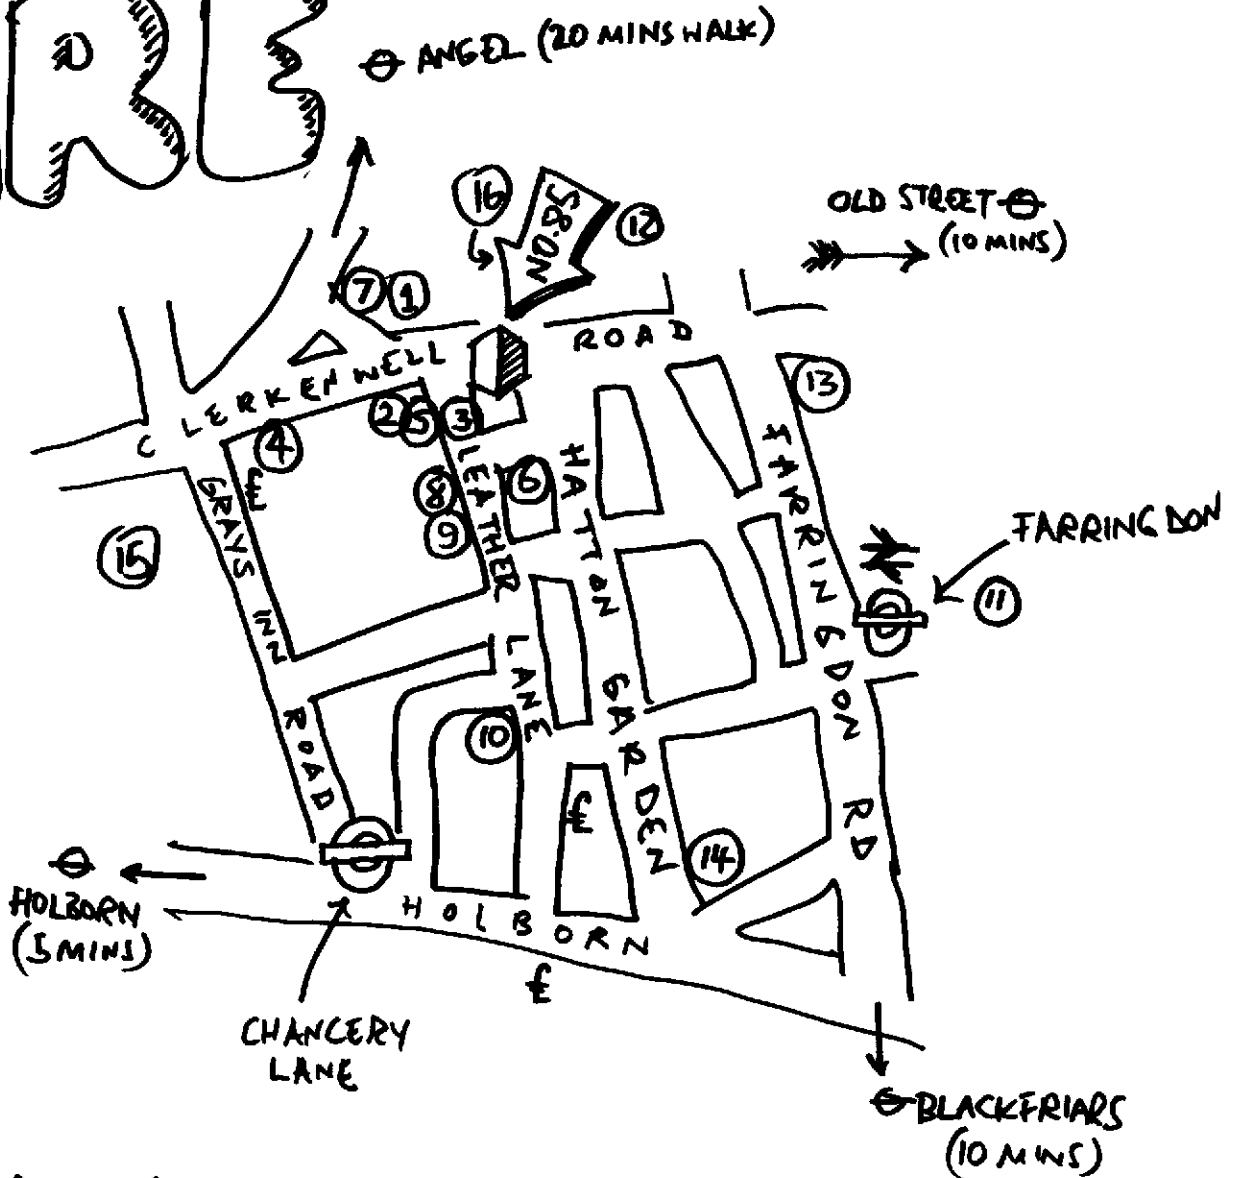 RE
ANGEL (20 MINS WALK)
16
NO.85
12
OLD STREET
(10 MINS)
7
1
CLERKENWELL
ROAD
13
2
5
3
4
£
6
8
9
15
GRAYS INN
ROAD
LEATHER
LANE
HATTON
GARDEN
FARRINGDON
RD
FARRINGDON
11
10
£
14
HOLBORN
(5 MINS)
HOLBORN
£
CHANCERY
LANE
BLACKFRIARS
(10 MINS)